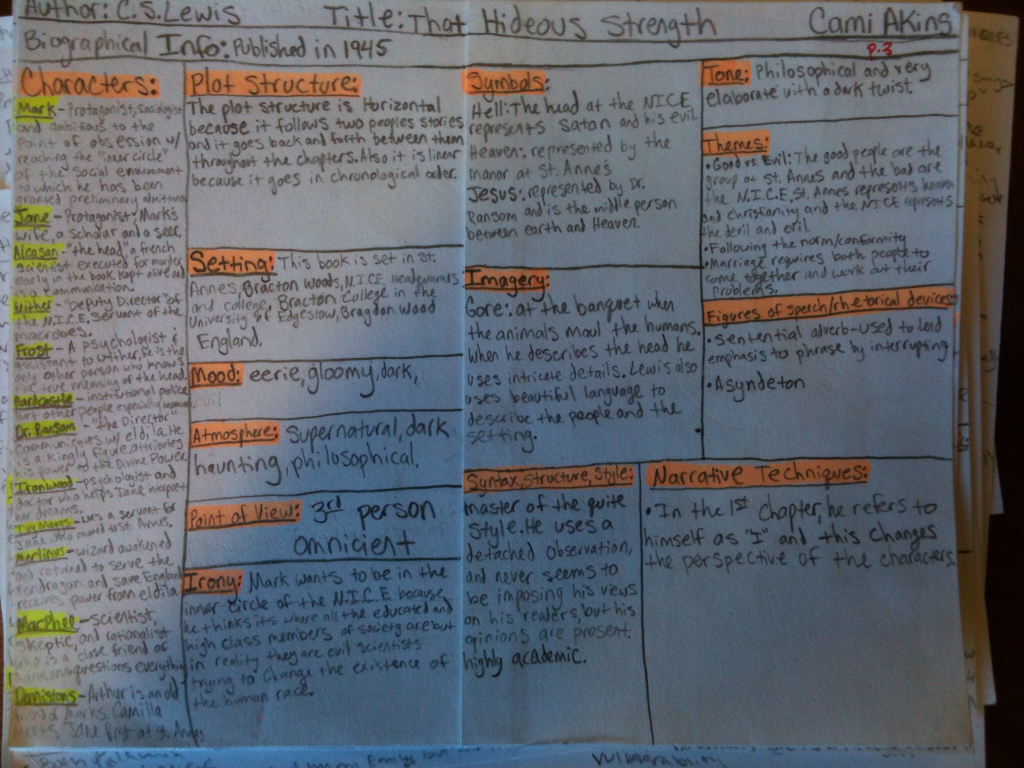 Author: C.S. Lewis Title: That Hideous Strength Cami Akins
Biographical Info: Published in 1945 P.3
Characters:
Mark - Protagonist, sociologist
and ambitious to the
Point of obsession w/
reaching the "inner circle"
of the social environment
to which he has been
granted preliminary admittance
Jane - Protagonist, Mark's
wife, a scholar and a seer.
Alcasan - "the head", a french
scientist executed for murder
early on in the book, kept alive and
communication.
Wither - "Deputy Director" of
the N.I.C.E. servant of the
macrobes.
Frost - A psychologist &
assistant to wither, he is the
only other person who knows
true meaning of the head.
Hardcastle - institutional police
other people especially
Dr. Ransom - "the Director"
Communicates w/ eldila. He
is a kingly figure, attributes
his power to the Divine Power.
Ironwood - psychologist and
doctor who helps Jane interpret
her dreams.
was a servant for
Jane
Merlinus - wizard awakened
and returned to serve the
Pendragon and save England
receives power from eldila
MacPhee - scientist,
skeptic, and rationalist
who is a close friend of
questions everything
Dennistons - Arthur is an old
friend of Marks. Camilla
Jane first at St. Annes
Plot Structure:
The plot structure is Horizontal
because it follows two peoples stories
and it goes back and forth between them
throughout the chapters. Also it is linear
because it goes in chronological order.
Setting: This book is set in St.
Annes, Bracton Woods, N.I.C.E. Headquarters
and college, Bracton College in the
University of Edgestow, Bragdon Wood
England.
Mood: eerie, gloomy, dark,
Atmosphere: Supernatural, dark
haunting, philosophical,
Point of View: 3rd person
omnicient
Irony: Mark wants to be in the
inner circle of the N.I.C.E because
he thinks its where all the educated and
high class members of society are but
in reality they are evil scientists
trying to change the existence of
the human race.
Symbols:
Hell: The head at the NICE
represents Satan and his evil.
Heaven: represented by the
manor at St. Anne's
Jesus: represented by Dr.
Ransom and is the middle person
between earth and Heaven.
Imagery:
Gore: at the banquet when
the animals maul the humans.
When he describes the head he
uses intricate details. Lewis also
uses beautiful language to
describe the people and the
setting.
Syntax, Structure, Style:
master of the quite
style. He uses a
detached observation,
and never seems to
be imposing his views
on his readers, but his
opinions are present.
highly academic.
Tone: Philosophical and very
elaborate with a dark twist.
Themes:
• Good vs. Evil: The good people are the
group at St. Annes and the bad are
the N.I.C.E. St. Annes represents heaven
and christianity and the NICE represents
the devil and evil.
• Following the norm/conformity
• Marriage requires both people to
come together and work out their
Problems.
Figures of speech/rhetorical devices:
• sentential adverb - used to lend
emphasis to phrase by interrupting
• Asyndeton
Narrative Techniques:
• In the 1st chapter, he refers to
himself as "I" and this changes
the perspective of the characters.
Vulnerability